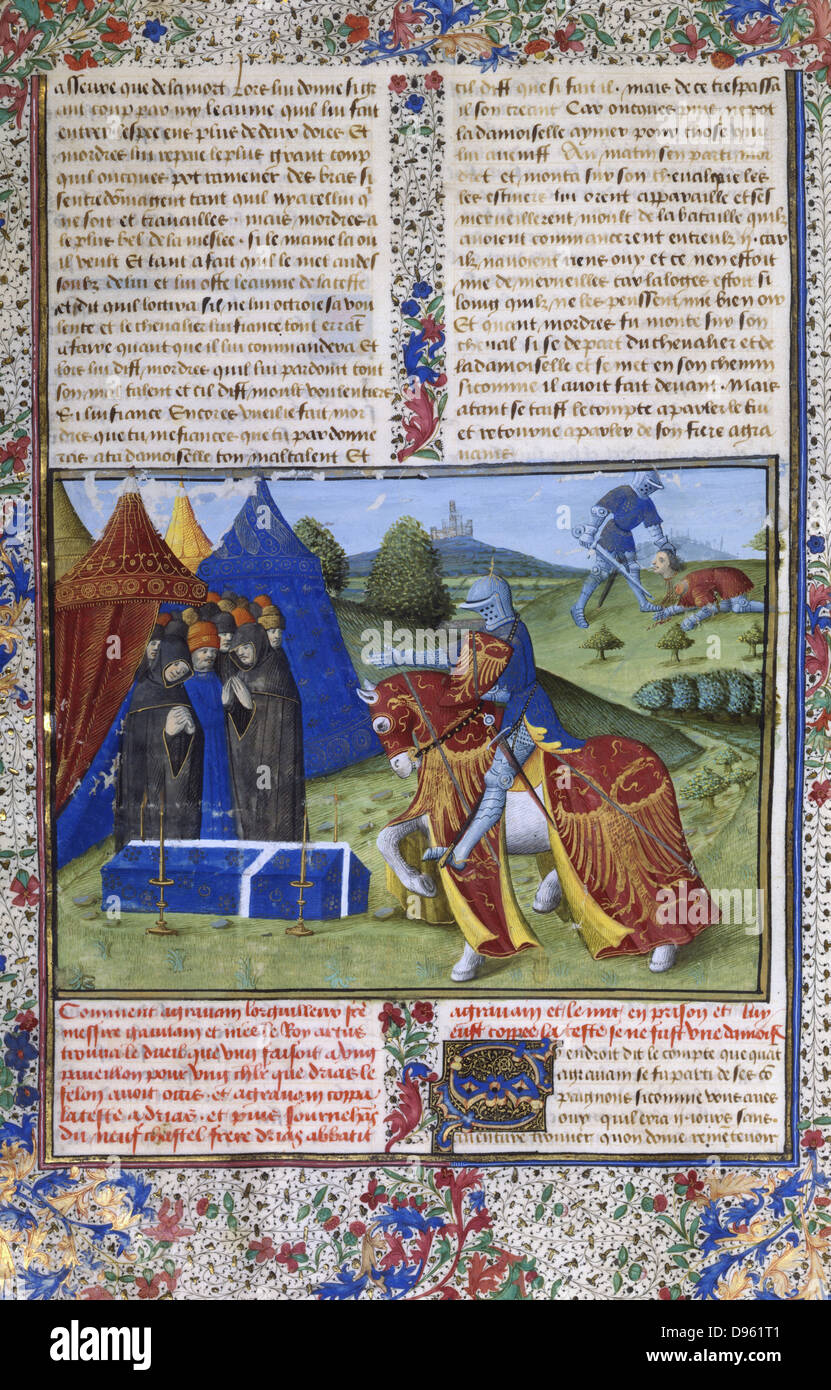 asseure que de la mort lors lui donne si gr
ant coup par my leaume quil lui fait
entrer lespee ens plus de deux doies Et
mordres lui repaie le plus grant coup
quil oncques pot ramener des bras si
sentredommagent tant quil ny a cellui q
ne soit et travailles mais mordres a
le plus bel de la meslee si le maine la ou
il veult Et tant a fait quil le met au des
soubz de lui et lui oste leaume de la teste
et dit quil locira sil ne lui octroie sa vou
lente et le chevalier lui fiance tout errat
a faire quant que il lui commandera Et
lors lui dist mordres quil pardonit tout
son maltalent et cil dist moult voulentiers
Si lui fiance Encores vueil je fait mor
dres que tu me fiances que tu pardonne
ras a ta damoiselle ton maltalent Et
cil dist que si fait il mais de ce trespassa
il son creant Car oncques puis nepot
la damoiselle aymer pour chose qui
lui avenist Au matin sen parti mor
dret et monta sur son cheval que les
les escuiers lui orent appareille et ses
merveillerent moult de la bataille quilz
avoient commancerent entreulx ij car
ilz navoient riens ouy et ce nen estoit
mie de merveilles car la loges estoit si
loing quilz ne les peussent mie bien ouy
Et quant mordres fu monte sur son
cheval si se depart du chevalier et de
la damoiselle et se met en son chemin
si comme il avoit fait devant Mais
atant se taist le compte a parler de lui
et retourne a parler de son frere agra
vains
Comment agravain lorguilleux fre
messire gauvain et niez le Roy artus
trouva le dueil que ung faisoit a ung
paveillon pour ung chlr que drias le
felon avoit occis et agravain coppa
la teste a drias et puis sournehas
du neuf chastel frere drias abbati
agravain et le mit en prison et luy
eust coppee la teste se ne fust une damois
endroit dit le compte que quat
agravain se fu parti de ses co
paignons si comme vous aves
ouy quil erra ij jours sans
aventure trouver quon doive ramentevoir
alamy
D961T1
alamy
Image ID: D961T1
www.alamy.com